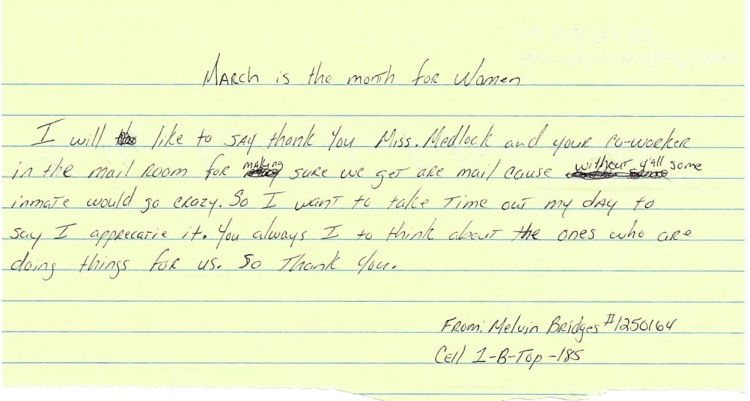 March is the month for Women
I will like to say thank you Miss. Medlock and your co-worker
in the mail room for making sure we get are mail cause without y'all some
inmate would go crazy. So I want to take time out my day to
say I apprecatie it. You always I to think about the ones who are
doing things for us. So Thank you.
From: Melvin Bridges #1250164
Cell 1-B-Top-185